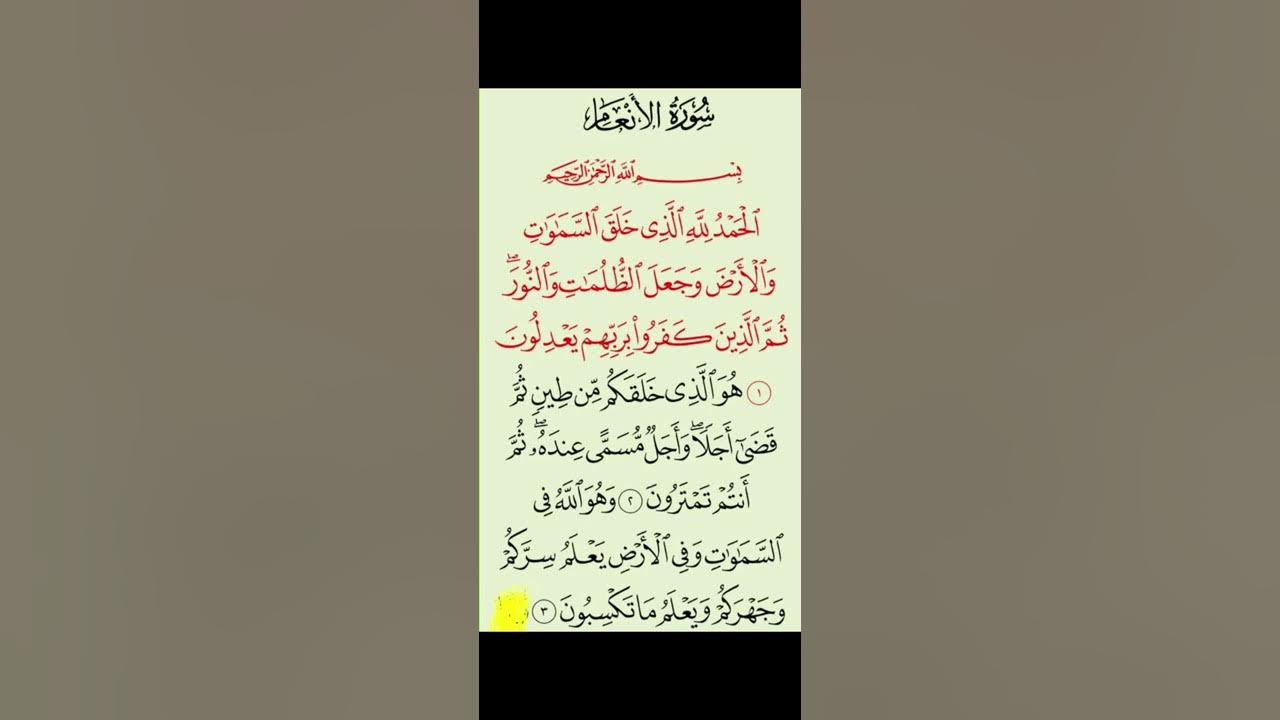 سُورَةُ الأَنْعَامِ
بِسْمِ ٱللَّهِ ٱلرَّحْمَٰنِ ٱلرَّحِيمِ
ٱلْحَمْدُ لِلَّهِ ٱلَّذِى خَلَقَ ٱلسَّمَٰوَٰتِ
وَٱلْأَرْضَ وَجَعَلَ ٱلظُّلُمَٰتِ وَٱلنُّورَ ۖ
ثُمَّ ٱلَّذِينَ كَفَرُوا۟ بِرَبِّهِمْ يَعْدِلُونَ
١ هُوَ ٱلَّذِى خَلَقَكُم مِّن طِينٍ ثُمَّ
قَضَىٰٓ أَجَلًا ۖ وَأَجَلٌ مُّسَمًّى عِندَهُۥ ۖ ثُمَّ
أَنتُمْ تَمْتَرُونَ ٢ وَهُوَ ٱللَّهُ فِى
ٱلسَّمَٰوَٰتِ وَفِى ٱلْأَرْضِ يَعْلَمُ سِرَّكُمْ
وَجَهْرَكُمْ وَيَعْلَمُ مَا تَكْسِبُونَ ٣